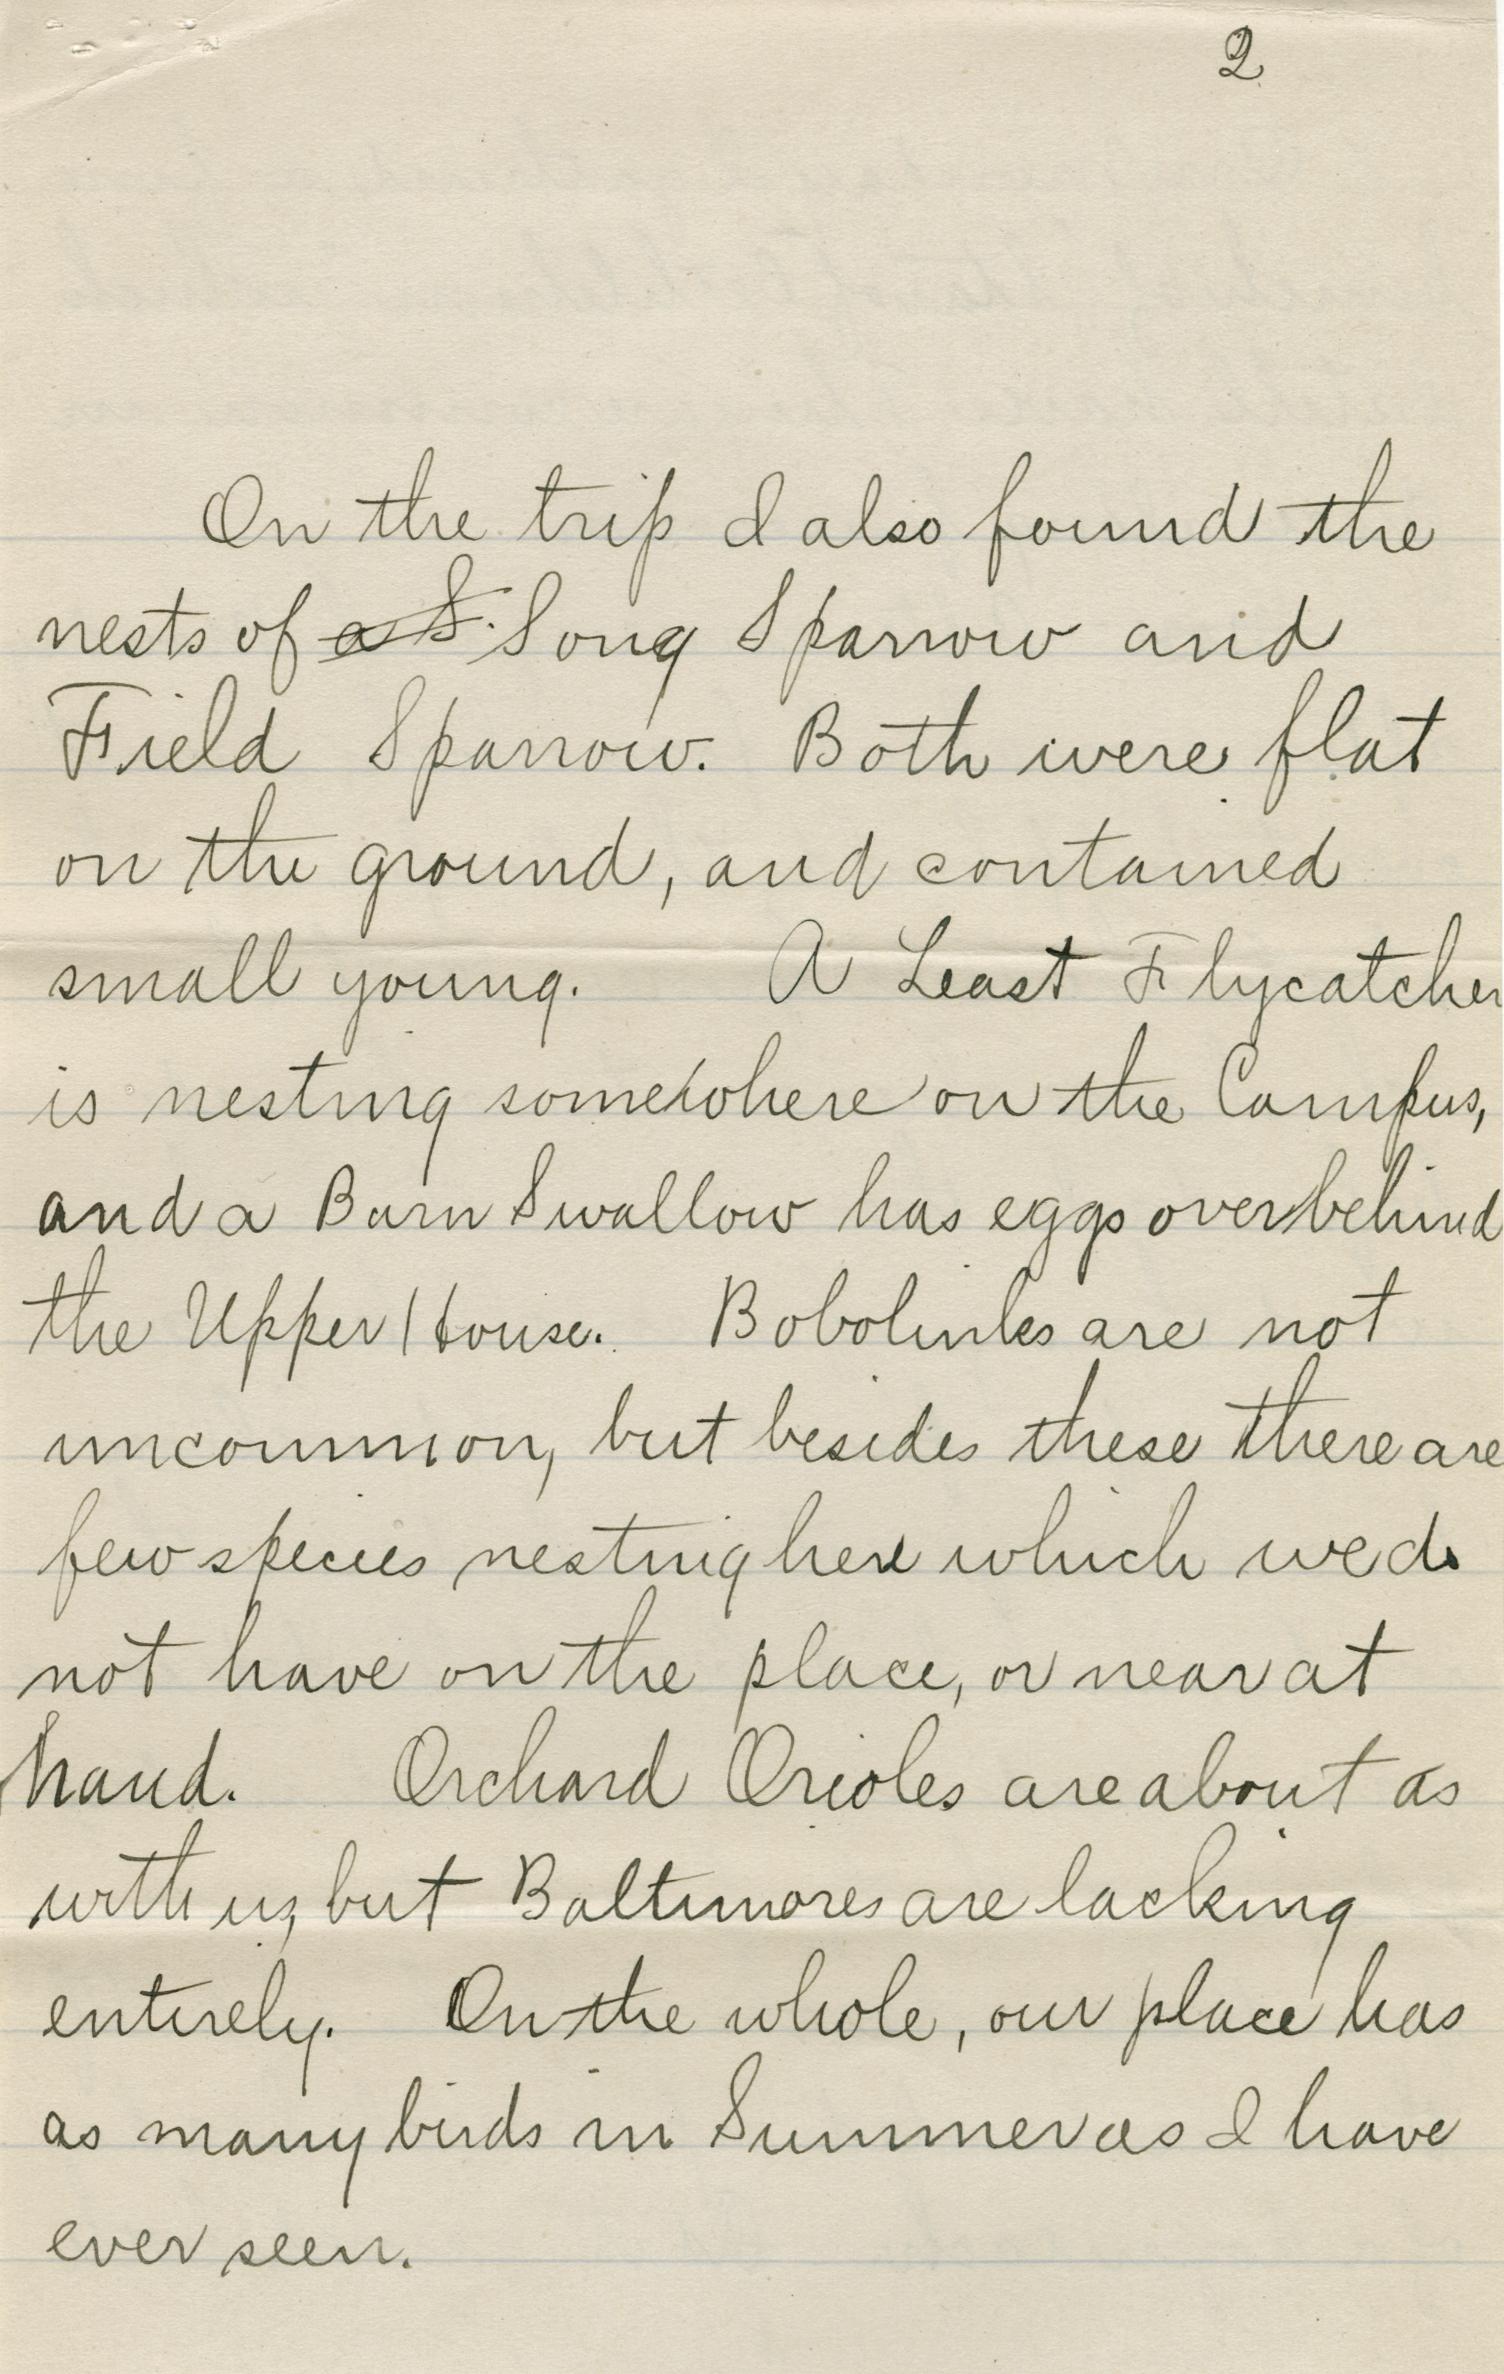 2
On the trip I also found the
nests of a S. Song Sparrow and
Field Sparrow. Both were flat
on the ground, and contained
small young. A Least Flycatcher
is nesting somewhere on the Campus,
and a Barn Swallow has eggs over behind
the Upper House. Bobolinks are not
uncommon, but besides these there are
few species nesting here which we do
not have on the place, or near at
hand. Orchard Orioles are about as
with us, but Baltimores are lacking
entirely. On the whole, our place has
as many birds in Summer as I have
ever seen.